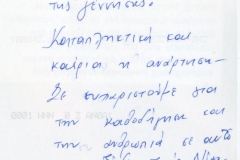 της γέννησης.
Καταληκτικά και
καίρια η ανάρτηση—
Σε ευχαριστούμε για
την καθοδήγηση και
την ανθρωπιά σε αυτό